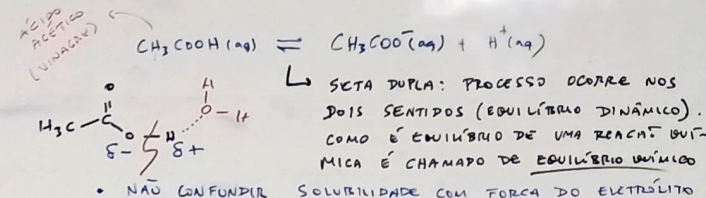 ÁCIDO
ACÉTICO
(VINAGRE)
CH3COOH(aq) ⇌ CH3COO⁻(aq) + H⁺(aq)
↳ SETA DUPLA: PROCESSO OCORRE NOS
DOIS SENTIDOS (EQUILÍBRIO DINÂMICO).
COMO É EQUILÍBRIO DE UMA REAÇÃO QUÍ-
MICA É CHAMADO DE EQUILÍBRIO QUÍMICO
H3C C O O H
δ- δ+
H O H
• NÃO CONFUNDIR SOLUBILIDADE COM FORÇA DO ELETRÓLITO